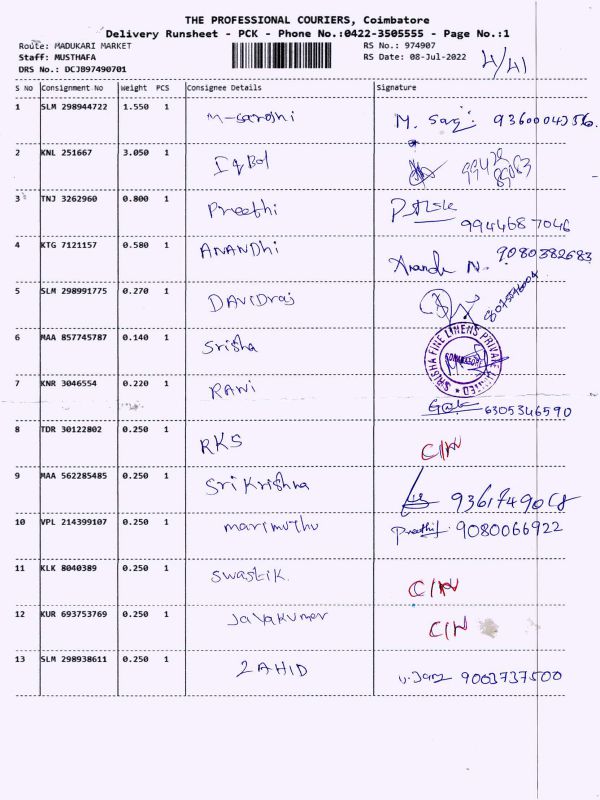 THE PROFESSIONAL COURIERS, Coimbatore
Delivery Runsheet - PCK - Phone No.:0422-3505555 - Page No.:1
Route: MADUKARI MARKET RS No.: 974907
Staff: MUSTHAFA RS Date: 08-Jul-2022 4/41
DRS No.: DCJB97490701
S No Consignment No Weight PCS Consignee Details Signature
1 SLM 298944722 1.550 1 M-sardhi M. 9360004356.
2 KNL 251667 3.050 1 IqBol 99429
89083
3 TNJ 3262960 0.800 1 Preethi
9944687046
4 KTG 7121157 0.580 1 ANANDhi Anandhi N. 9080382683
5 SLM 298991775 0.270 1 DAVIDraj
6 MAA 857745787 0.140 1 Srisha SRISHA FINE LINENS PRIVATE LIMITED
7 KNR 3046554 0.220 1 RANI 6305346590
8 TDR 30122802 0.250 1 RKS C/N
9 MAA 562285485 0.250 1 Sri Krishna
10 VPL 214399107 0.250 1 marimuthu Preethi 9080066922
11 KLK 8040389 0.250 1 Swastik. C/N
12 KUR 693753769 0.250 1 Jayakumar C/N
13 SLM 298938611 0.250 1 ZAHID 9003737500